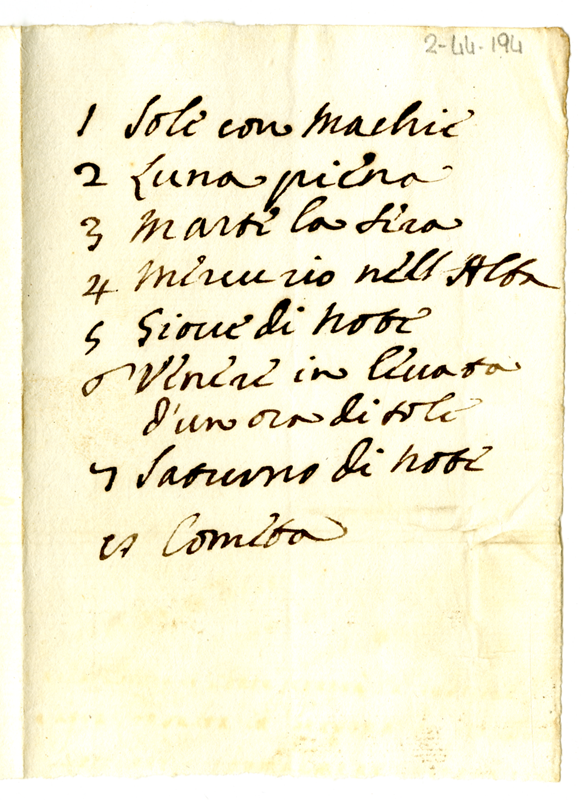 2-44-194
1 Sole con Machie
2 Luna piena
3 Marte la sera
4 Mercurio nell'Alba
5 Gioue di note
6 Venere in leuata
d'un ora di sole
7 Saturno di note
Cometa